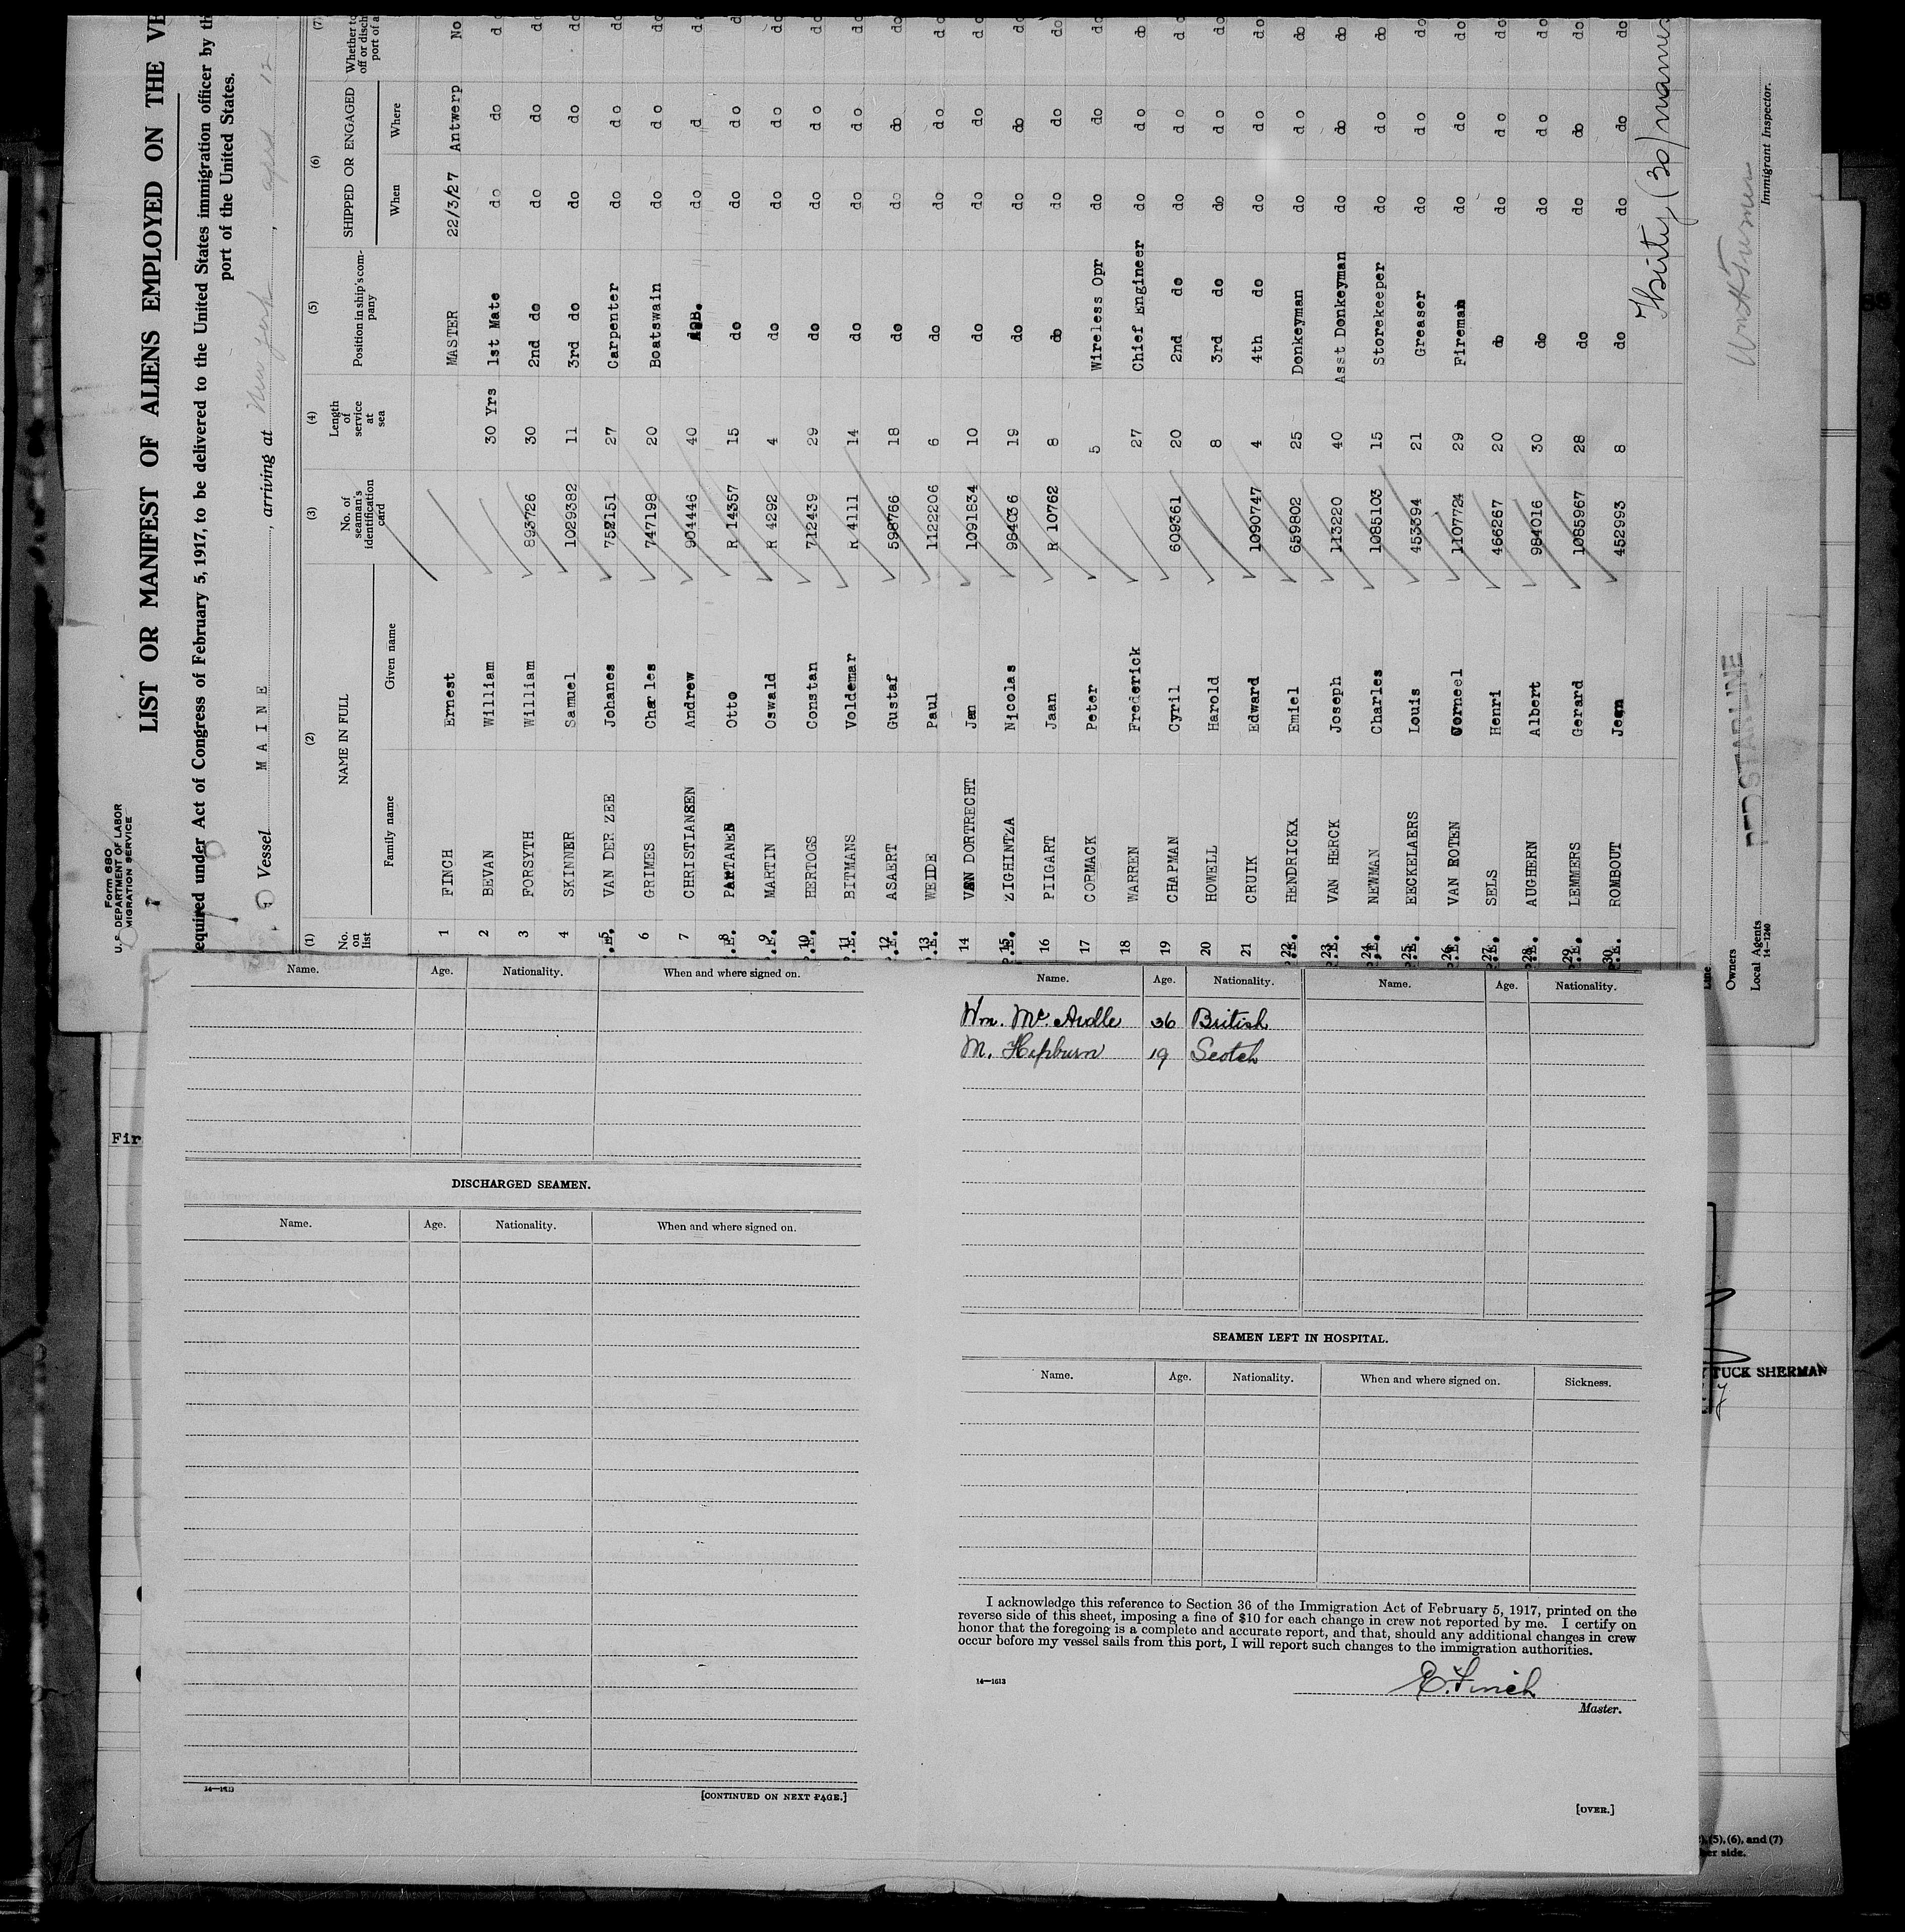 Form 680
U.S. DEPARTMENT OF LABOR
MIGRATION SERVICE
LIST OR MANIFEST OF ALIENS EMPLOYED ON THE
equired under Act of Congress of February 5, 1917, to be delivered to the United States immigration officer by
port of the United States.
Vessel MAINE, arriving at New York, april 12
(1) (2) (3) (4) (5) (6) (7)
No. on list NAME IN FULL No. of seaman's identification card Length of service at sea Position in ship's company SHIPPED OR ENGAGED Whether to
off or disch
port of a
Family name Given name When Where
1 FINCH Ernest MASTER 22/3/27 Antwerp No
2 BEVAN William 30 Yrs 1st Mate do do d
3 FORSYTH William 893726 30 2nd do do do do
4 SKINNER Samuel 1029382 11 3rd do do do do
5 VAN DER ZEE Johanes 752151 27 Carpenter do do do
6 GRIMES Charles 747198 20 Boatswain do do do
7 CHRISTIANSEN Andrew 904446 40 do d d
8 Otto R 14357 15 do do do d
9 MARTIN Oswald R 4292 4 do do do do
10 HERTOGS Constan 712439 29 do do do do
11 BITMANS Voldemar R 4111 14 do do do do
12 ASAERT Gustaf 598766 18 do do do do
13 WEIDE Paul 1122206 6 do do do d
14 VAN DORTRECHT Jan 1091834 10 do do do do
15 ZIGHINTZA Nicolas 984036 19 do do do do
16 PIIGART Jaan R 10762 8 do do do do
17 CORMACK Peter 5 Wireless Opr do do do
18 WARREN Frederick 27 Chief Engineer do do do
19 CHAPMAN Cyril 609361 20 2nd do do do d
20 HOWELL Harold 8 3rd do do do do
21 CRUIK Edward 1090747 4 4th do do do do
22 HENDRICKX Emiel 659802 25 Donkeyman do do do
23 VAN HERCK Joseph 113220 40 Asst Donkeyman do do do
24 NEWMAN Charles 1085103 15 Storekeeper do do do
25 EECKELAERS Louis 453394 21 Greaser do do do
26 VAN ROTEN Corneel 1107724 29 Fireman do do do
27 SELS Henri 466267 20 do do do do
28 AUGHERN Albert 984016 30 do do do do
29 LEMMERS Gerard 1085967 28 do do do do
30 ROMBOUT Jean 452993 8 do do do do
Thirty (30) names
Immigrant Inspector.
Line
Owners
RED STAR LINE
Local Agents
14—1240
Name. Age. Nationality. When and where signed on.
DISCHARGED SEAMEN.
Name. Age. Nationality. When and where signed on.
14—1613
[CONTINUED ON NEXT PAGE.]
Name. Age. Nationality. Name. Age. Nationality.
Wm. Mc. Ardle 36 British
M. Hepburn 19 Scotch
SEAMEN LEFT IN HOSPITAL.
Name. Age. Nationality. When and where signed on. Sickness.
I acknowledge this reference to Section 36 of the Immigration Act of February 5, 1917, printed on the
reverse side of this sheet, imposing a fine of $10 for each change in crew not reported by me. I certify on
honor that the foregoing is a complete and accurate report, and that, should any additional changes in crew
occur before my vessel sails from this port, I will report such changes to the immigration authorities.
14—1613
E. Finch
Master.
[OVER.]
Fir
TUCK SHERMAN
(5), (6), and (7)
her side.